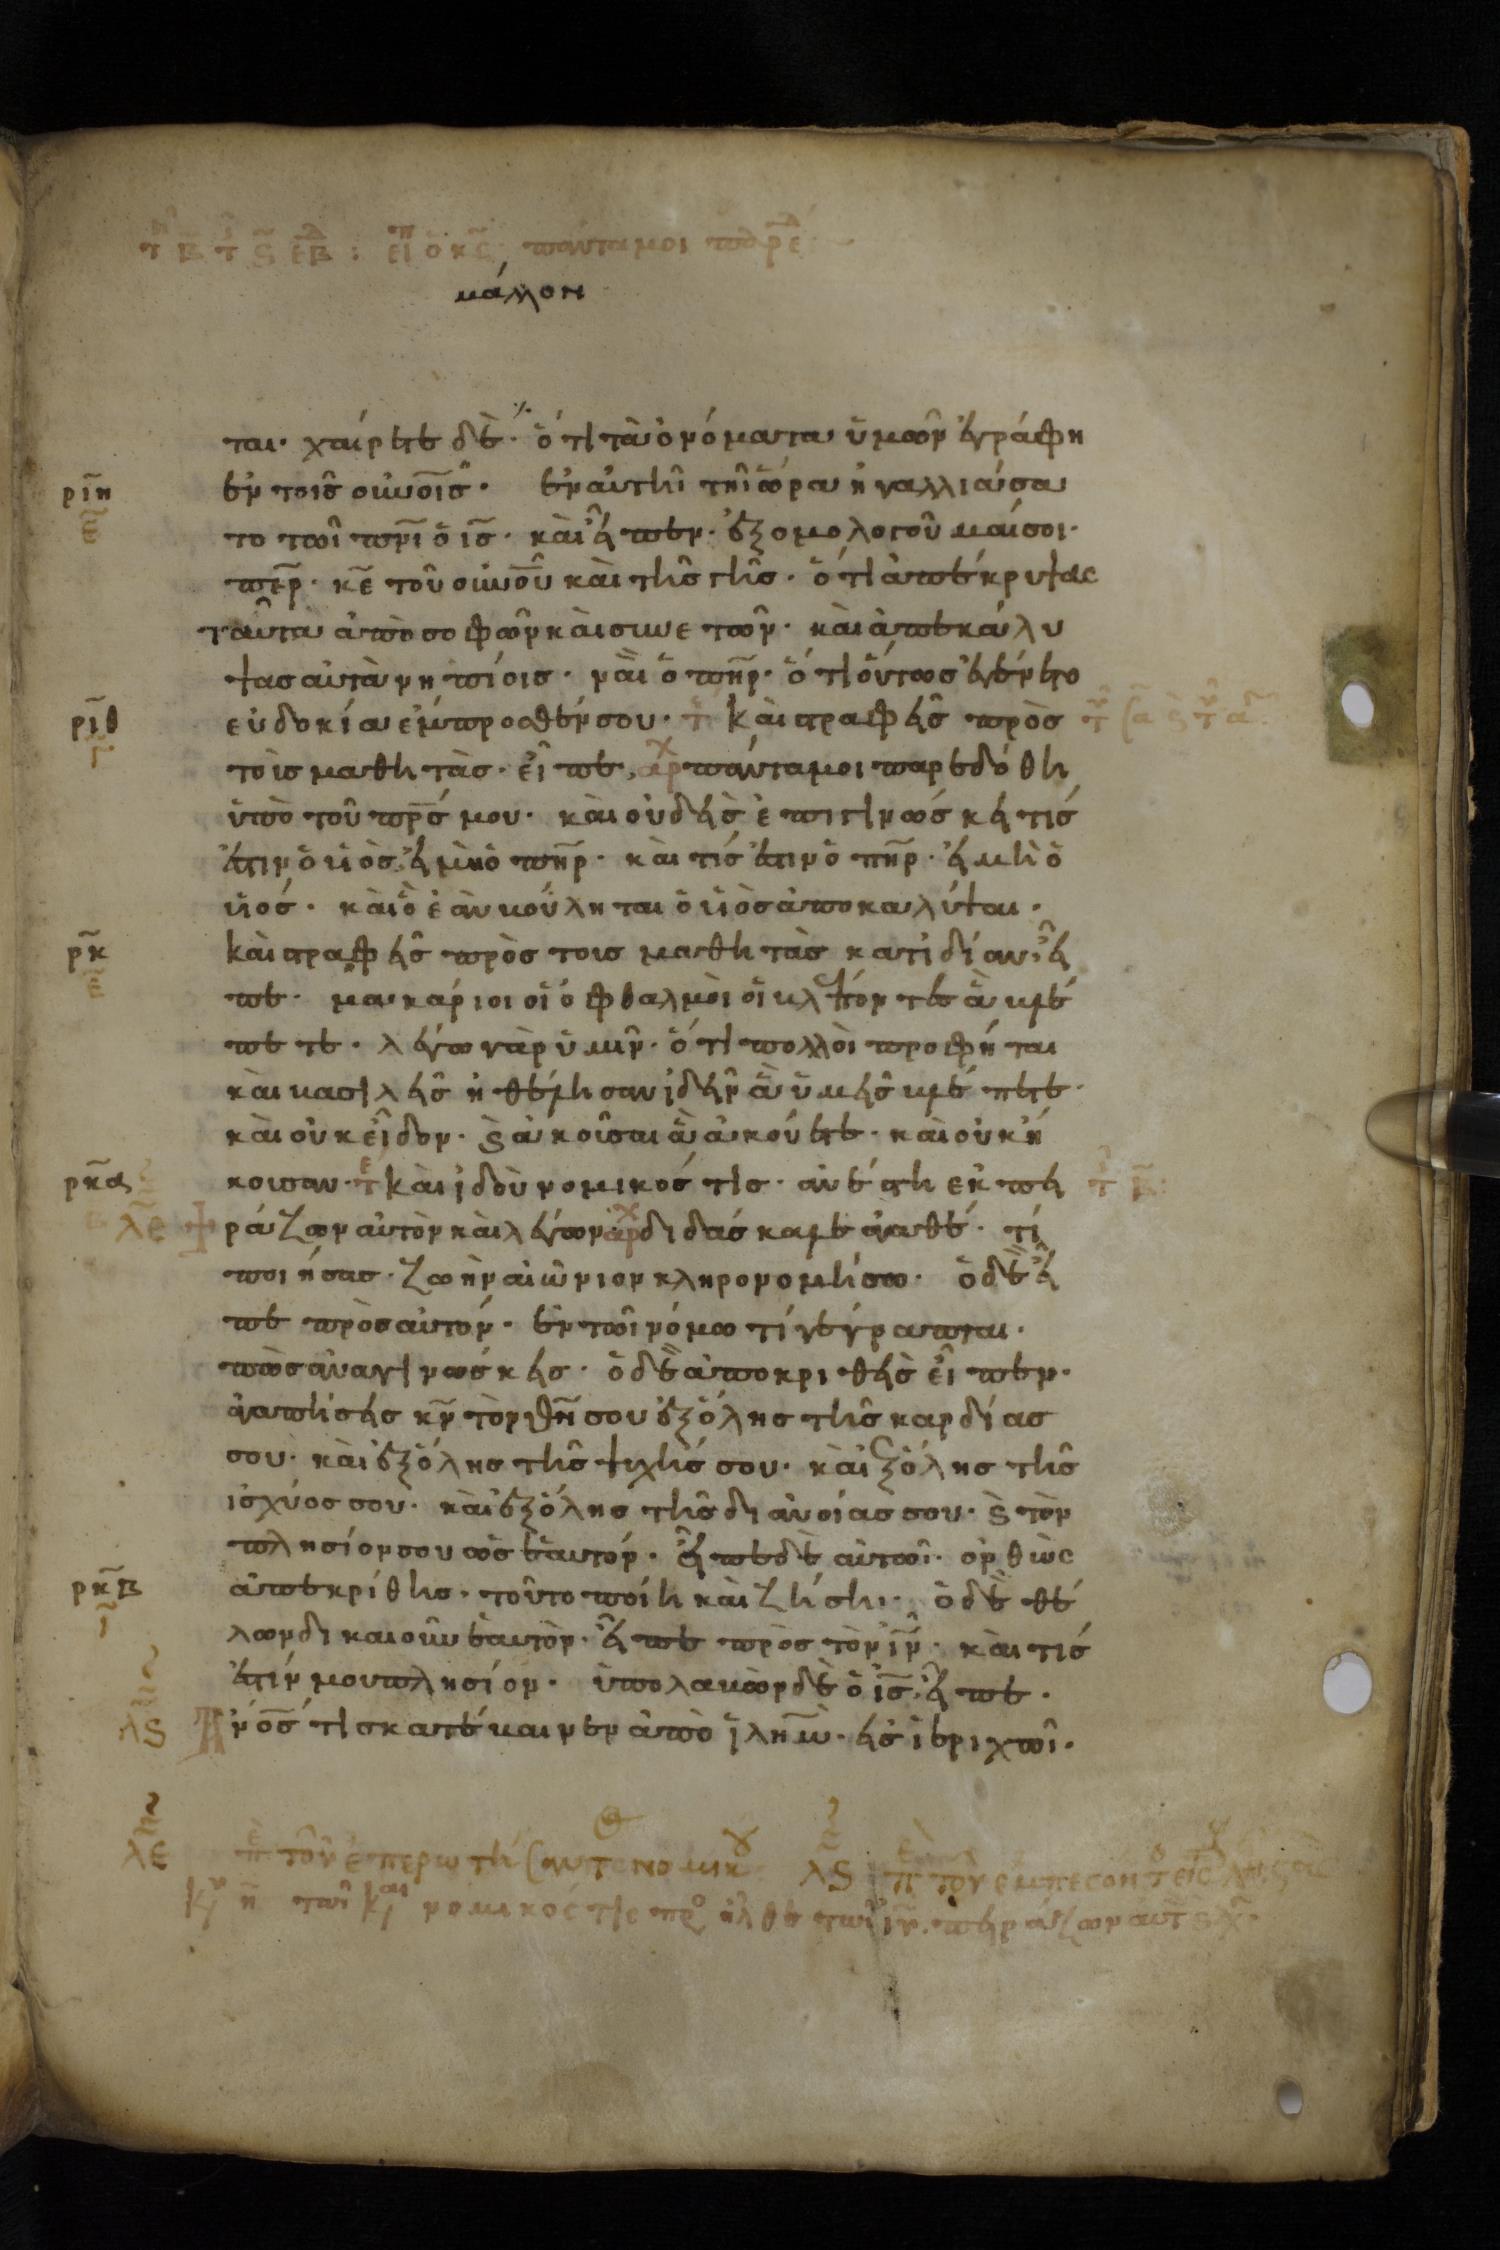 μάλλον
ται· χαίρετε δὲ· ὅτι τὰ ὀνόματα ὑμῶν ἐγράφη
ἐν τοῖς οὐνοῖς· ἐν αὐτῆι τῆι ὥρα ἠγαλλιάσα
το τῶι πνι ὁ ις· καὶ εἶπεν· ἐξομολογοῦμαί σοι·
περ· κε τοῦ οὐνοῦ καὶ τῆς γῆς· ὅτι ἀπέκρυψας
ταῦτα ἀπὸ σοφῶν καὶ συνετῶν· καὶ ἀπεκάλυ
ψας αὐτὰ νηπίοις· ναὶ ὁ πηρ· ὅτι οὕτως ἐγένετο
εὐδοκία ἔμπροσθέν σου· καὶ στραφεὶς πρὸς
τοὺς μαθητὰς· εἶπε, πάντα μοι παρεδόθη
ὑπὸ τοῦ πρς μου· καὶ οὐδεὶς ἐπιγινώσκει τίς
ἐστιν ὁ υἱὸς, εἰ μὴ ὁ πηρ· καὶ τίς ἐστιν ὁ πηρ· εἰ μὴ ὁ
υἱός· καὶ ὧ ἐὰν βούληται ὁ υἱὸς ἀποκαλύψαι·
καὶ στραφεὶς πρὸς τοὺς μαθητὰς κατιδίαν, εἶ
πε· μακάριοι οἱ ὀφθαλμοὶ οἱ βλέποντες ἃ βλέ
πετε· λέγω γὰρ ὑμῖν· ὅτι πολλοὶ προφῆται
καὶ βασιλεῖς ἠθέλησαν ἰδεῖν ἃ ὑμεῖς βλέπετε·
καὶ οὐκ εἶδον· ϗ ἀκοῦσαι ἃ ἀκούετε· καὶ οὐκ ἤ
κουσαν· καὶ ἰδοὺ νομικός τις· ἀνέστη ἐκπει
ράζων αὐτὸν καὶ λέγων διδάσκαλε ἀγαθέ· τί
ποιήσας· ζωὴν αἰώνιον κληρονομήσω· ὁ δὲ εἶ
πε πρὸς αὐτόν· ἐν τῶι νόμω τί γέγραπται·
πῶς ἀναγινώσκεις· ὁ δὲ ἀποκριθεὶς εἶπεν·
ἀγαπήσεις κν τὸν θν σου ἐξ ὅλης τῆς καρδίας
σου· καὶ ἐξ ὅλης τῆς ψυχῆς σου· καὶ ἐξ ὅλης τῆς
ἰσχύος σου· καὶ ἐξ ὅλης τῆς διανοίας σου· ϗ τὸν
πλησίον σου ὡς ἑαυτόν· εἶπε δὲ αὐτῶι· ὀρθῶς
ἀπεκρίθης· τοῦτο ποίει καὶ ζήσηι· ὁ δὲ θέ
λων δικαιοῦν ἑαυτὸν· εἶπε πρὸς τὸν ιν· καὶ τίς
ἐστίν μου πλησίον· ὑπολαβὼν δὲ ὁ ις, εἶπε·
ανος τις κατέβαινεν ἀπὸ ιλημ· εἰς ἱεριχῶι·
ριη
ριθ
ρκ
ρκα
λε
ρκβ
λς
λε
λς